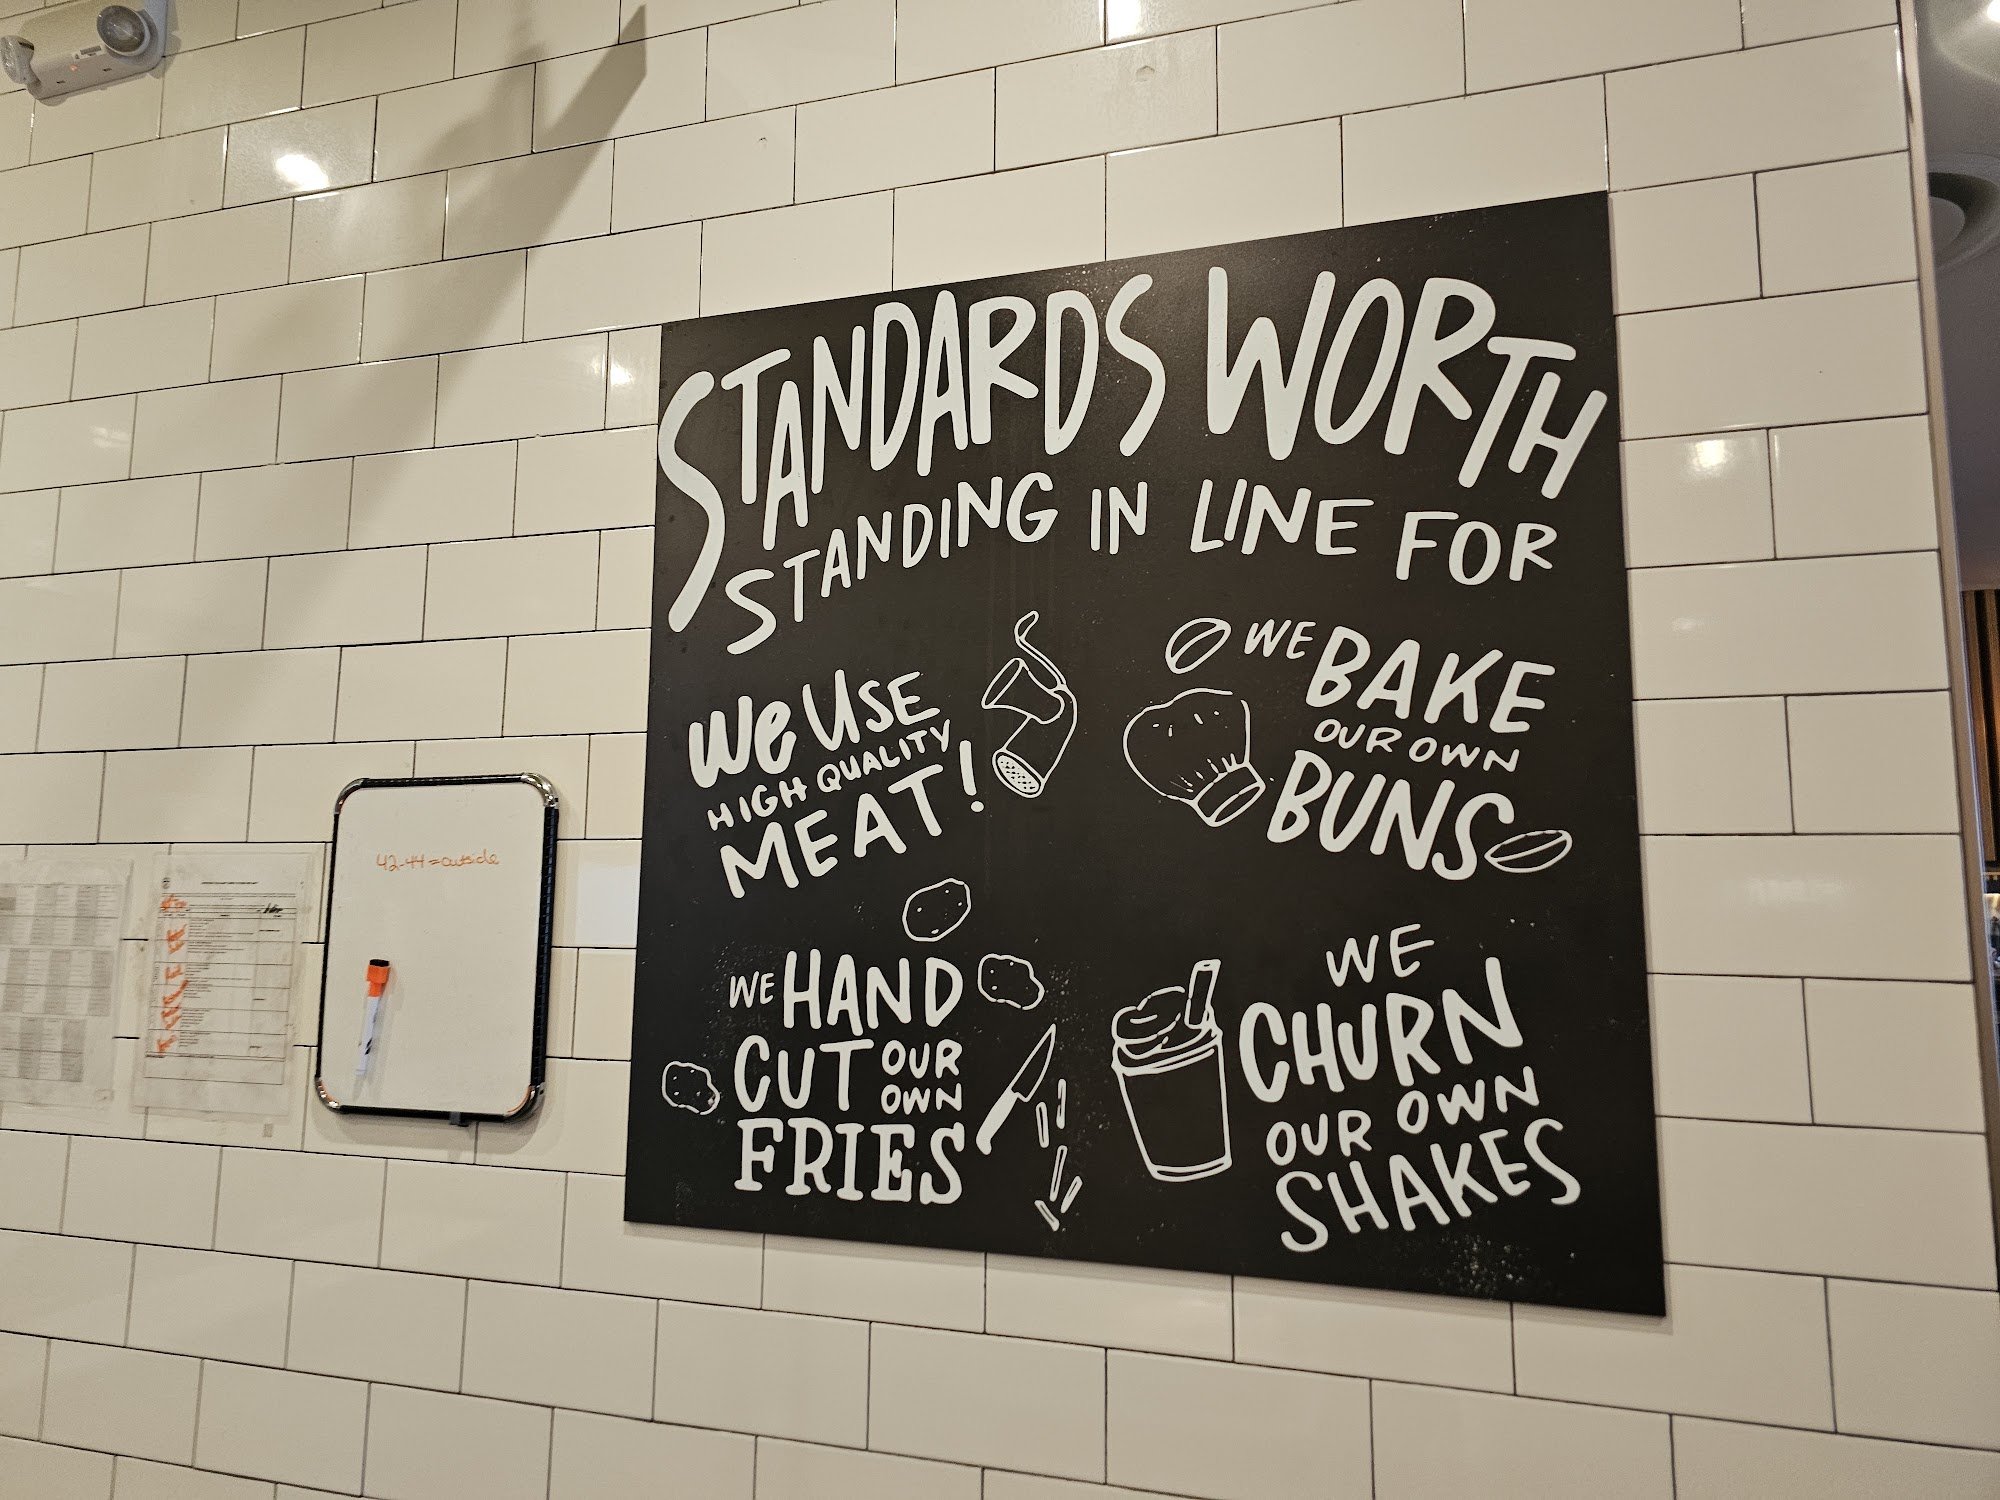 STANDARDS WORTH
STANDING IN LINE FOR
We USE
HIGH QUALITY
MEAT!
WE BAKE
OUR OWN
BUNS
WE HAND
CUT OUR
OWN
FRIES
WE
CHURN
OUR OWN
SHAKES
42-44=outside